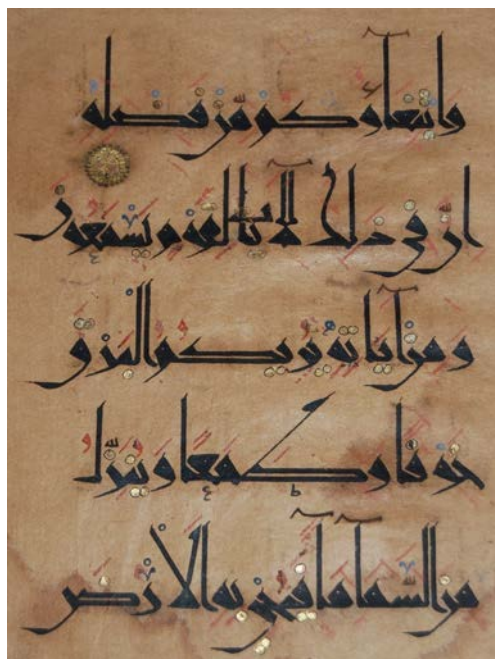 وابتغاؤكم من فضله
إن في ذلك لآيات لقوم يسمعون
ومن آياته يريكم البرق
خوفا وطمعا وينزل
من السماء ماء فيحيي به الأرض